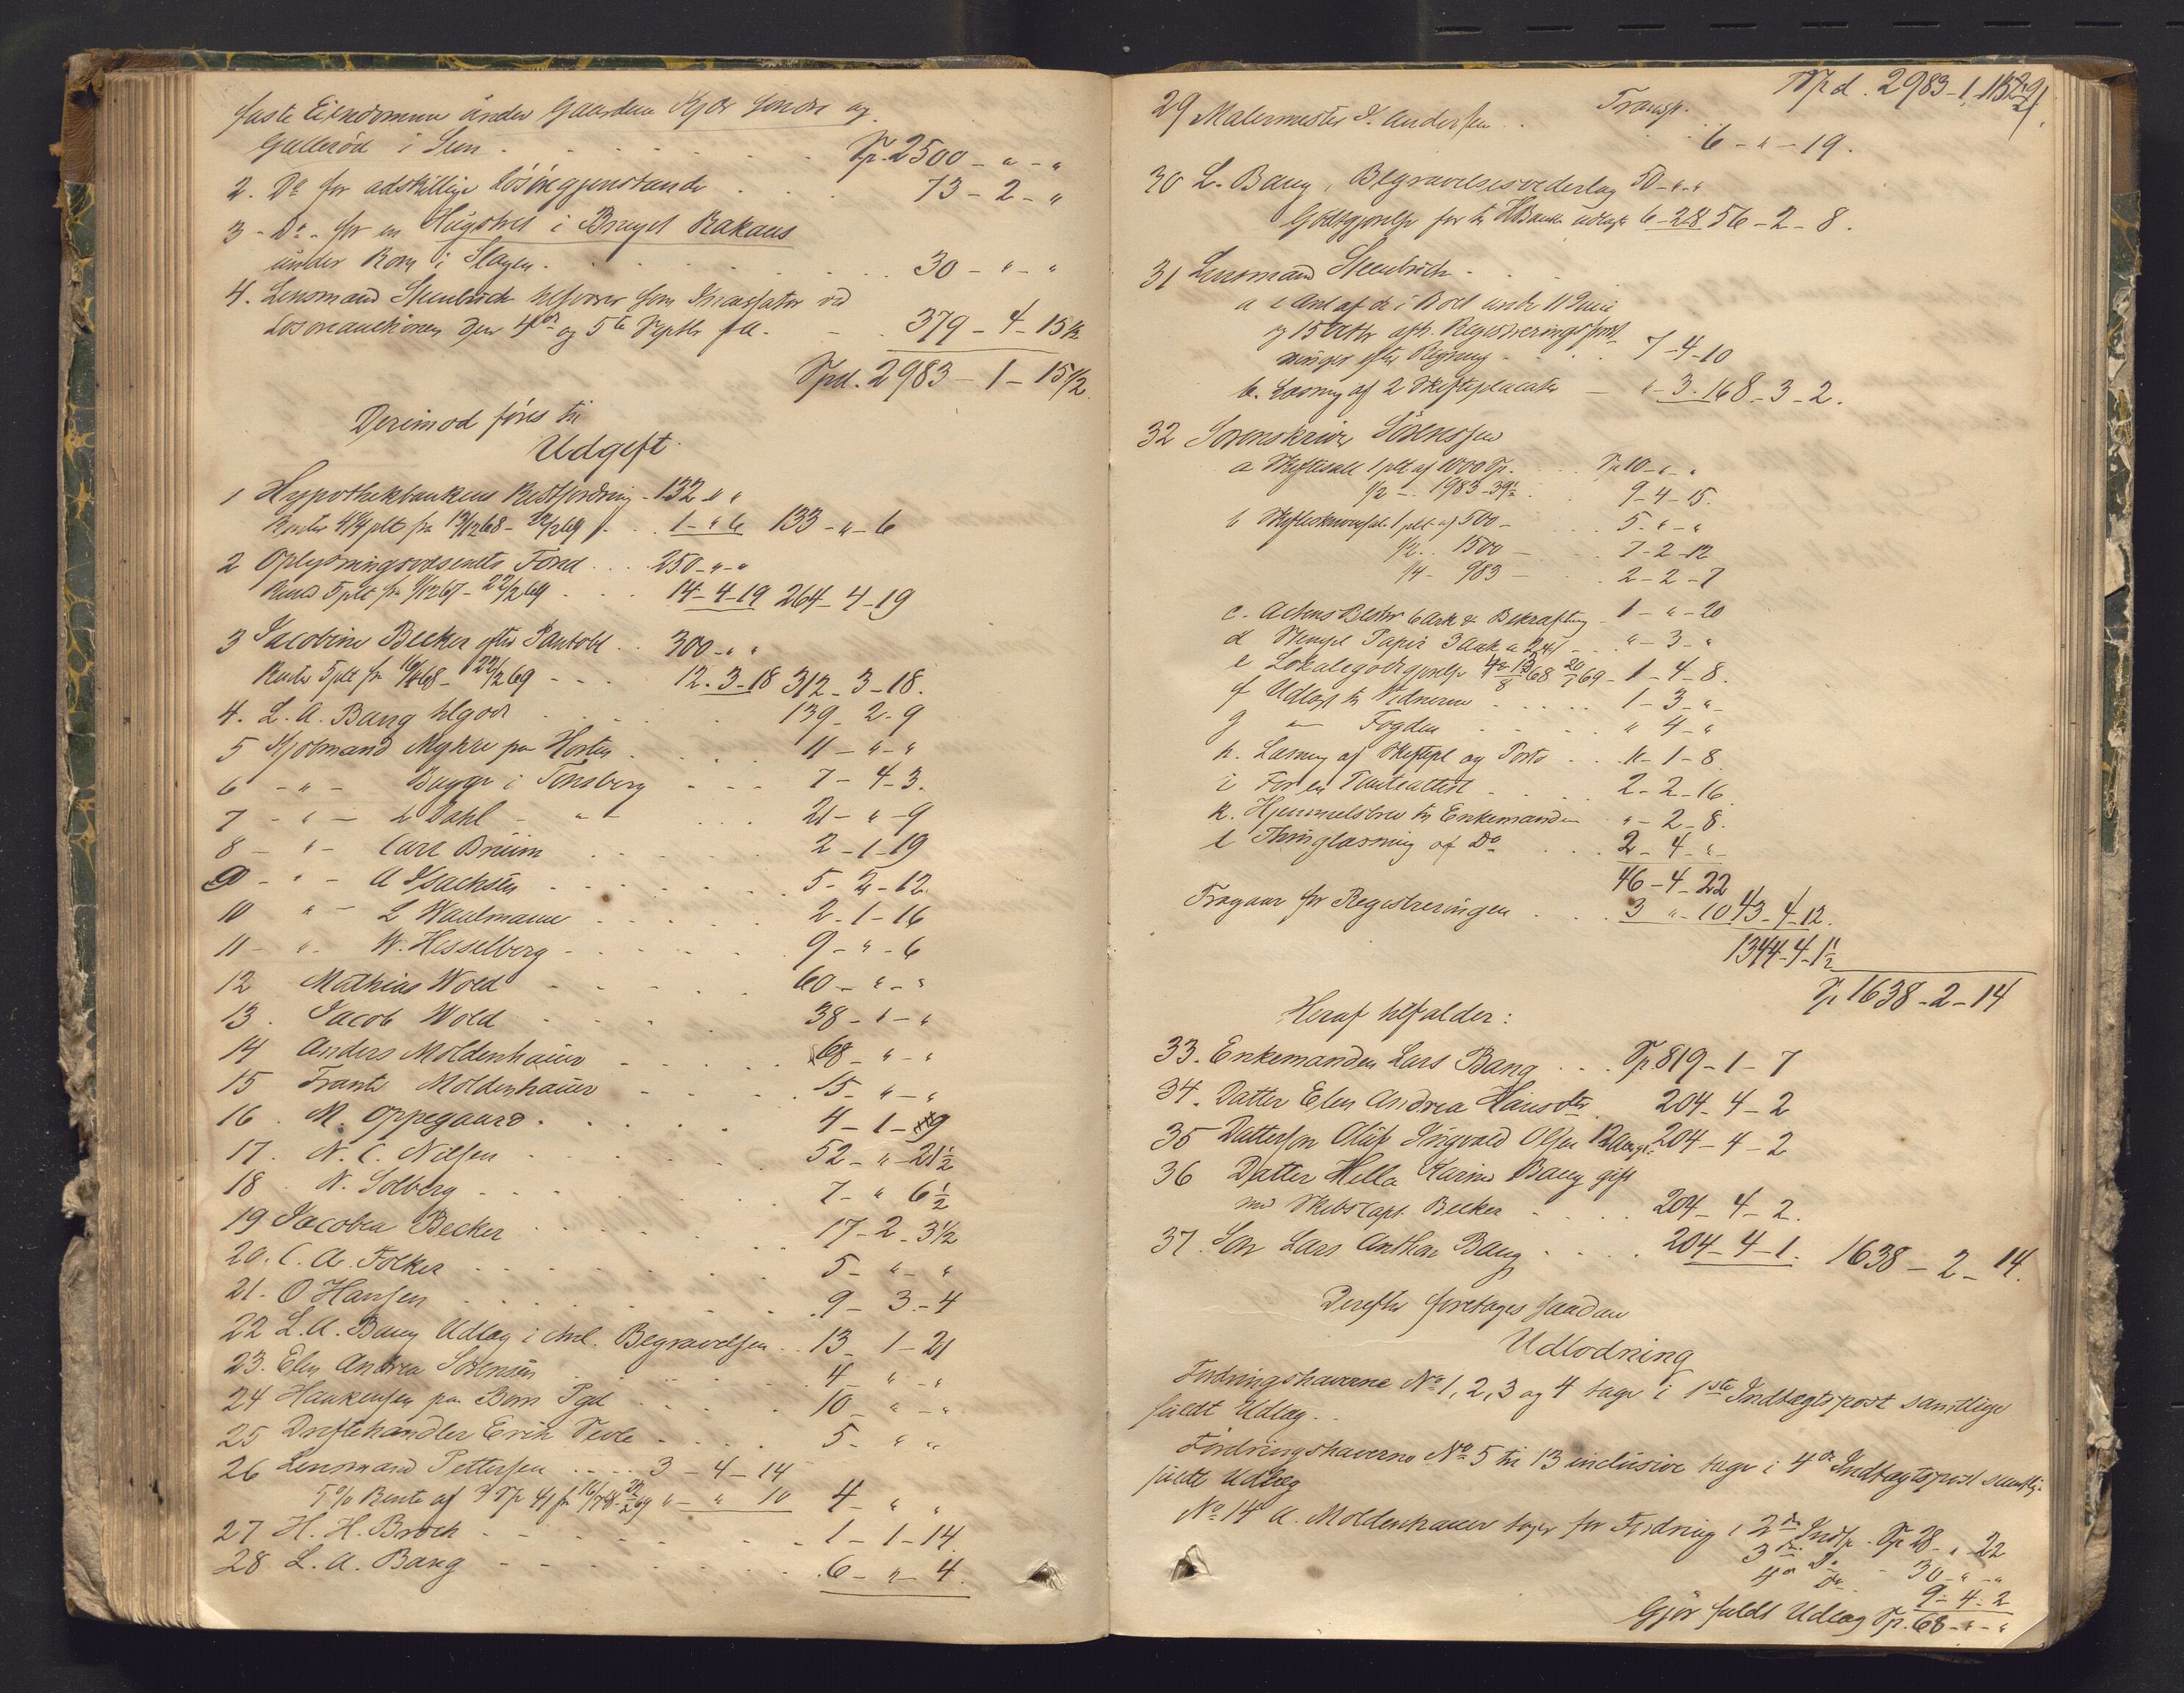 faste Eiendomme under Gaarden Kjær søndre og
Gallerød i Sem Sp. 2500 - " - "
2. Do for adskillige Løsøregjenstande 73 - 2 - "
3 - Do - for en Huusstol i Bruget Bakaas
under Rom i Slagen 30 - " - "
4. Lensmand Steenbuch tilsvarer som Incassator ved
Løsøreauctionen den 4de og 5te Septbr f.A. 379 - 4 - 15 1/2
Spd. 2983 - 1 - 15 1/2
Derimod føres til
Udgift.
1 Hypothekbankens Restfordring - 132 " "
Renter 4 1/4 pCt fra 13/12 68 - 22/2 69 1 - " 6 133 - " - 6
2 Oplysningsvæsenets Fond 250 - " - "
Renter 5 pCt fra 11/12 67 - 22/2 69 14 - 4 - 19 264 - 4 - 19
3 Jacobine Becker efter Pantobl 300 - " "
Renter 5 pCt fra 16/4 68 - 22/2 69 12 - 3 - 18 312 - 3 - 18.
4. L. A. Bang tilgode 139 - 2 - 9
5 Kjøbmand Myhre paa Horten 11 - " - "
6 - " - Bugge i Tønsberg 7 - 4 - 3.
7 - " - L Dahl - " - 21 - " - 9
8 - " - Carl Bruun 2 - 1 - 19
9 - " - A Isachsen 5 - 2 - 12.
10 " - L Waulmann 2 - 1 - 16
11 - " - W. Hesselberg 9 - " - 6
12 Mathias Wold 60 - " - "
13. Jacob Wold 38 - 1 - "
14 Anders Moldenhauer 68 - " - "
15 Frants Moldenhauer 15 - " - "
16. M. Oppegaard 4 - 1 - 9
17. N. C. Nilsen 52 - " - 21 1/2
18. N. Solberg 7 - " 6 1/2
19 Jacobea Becker 17 - 2 - 3 1/2
20. C. A. Folker 5 - " - "
21. O Hansen 9 - 3 - 4
22 L. A. Bang Udlæg i Anl. Begravelsen 13 1 - 21
23. Elen Andrea Sørensen 4 " - "
24 Haakensen paa Bøens Pgd 10 - " - "
25 Driftehandler Erik Tevle 5 - " "
26 Lensmand Pettersen 3 - 4 - 14
5 % Rente af 3 Sp 41 fra 16/7 68 - 22/2 69 " - " 10 4 - " "
27 H. H. Broch 1 - 1 - 14.
28 L. A. Bang 6 - " - 4.
Transp. Spd. 2983 - 1 - 15 1/2
29 Malermester J. Andersen 6 - " - 19.
30 L. Bang, Begravelsesvederlag 50 - " - "
Godtgjørelse for til HBank udlagt 6 - 2 8 56 - 2 - 8.
31 Lensmand Steenbuch
a i Anl af de i Boet under 11 Juni
og 15 Octbr afh. Registreringsforret-
ninger efter Regning 7 - 4 - 10
b. Læsning af 2 Skifteplacater " - 3 - 16 8 - 3 - 2.
32 Sorenskriver Sörenssen
a Skiftesall 1 pCt af 1000 Sp. Sp 10 - " - "
1/2 - 1983 - 39 1/2 9 - 4 - 15.
b Skifteskriversal 1 pCt af 500 - 5 - " - "
1/2 - 1500 - 7 - 2 - 12
1/4 - 983 - 2 - 2 - 7
c. Actens Beskr 6 Ark & Bekræftning 1 - " - 20
d Stempl. Papir 3 Ark a 24 " - 3 - "
e Lokalegodtgjørelse 68 69 - 1 - 4 - 8.
f Udlagt til Vidnerne 1 - 3 - "
g " Fogden " 4 - "
h. Læsning af Skiftepl og Porto " - 1 - 8.
i For en Panteattest 2 - 2 - 16
k. Hjemmelsbrev til Enkemanden " - 2 - 8.
l Thinglæsning af Do 2 - 4 - "
46 - 4 - 22
Fragaar for Registreringen 3 " - 10 43 - 4 - 12.
1344 - 4 - 1 1/2
Sp 1638 - 2 - 14
Heraf tilfalder:
33. Enkemanden Lars Bang Sp 819 - 1 - 7
34. Datter Elen Andrea Hansdtr 204 - 4 - 2
35 Dattersøn Oluf Ingvald Olsen 12 Aar gl. 204 - 4 - 2
36 Datter Hella Karine Bang gift
med Skibscapt. Becker 204 - 4 - 2.
37. Søn Lars Anthon Bang 204 - 4 - 1. 1638 - 2 - 14.
Derefter foretages saadan
Udlodning
Fordringshaverne No 1, 2, 3 og 4 tager i 1ste Indtægtspost samtlige
fuldt Udlæg.
Fordringshaverne No 5 til 13 inclusive tager i 4de Indtægtspost samtlige
fuldt Udlæg
No 14 A. Moldenhauer tager for Fordring i 2den Indtp. Sp 28 - " - 22
3die Do - 30 - " - "
4de Do 9 - 4 - 2
Gjør fuldt Udlæg Sp. 68 - " - "